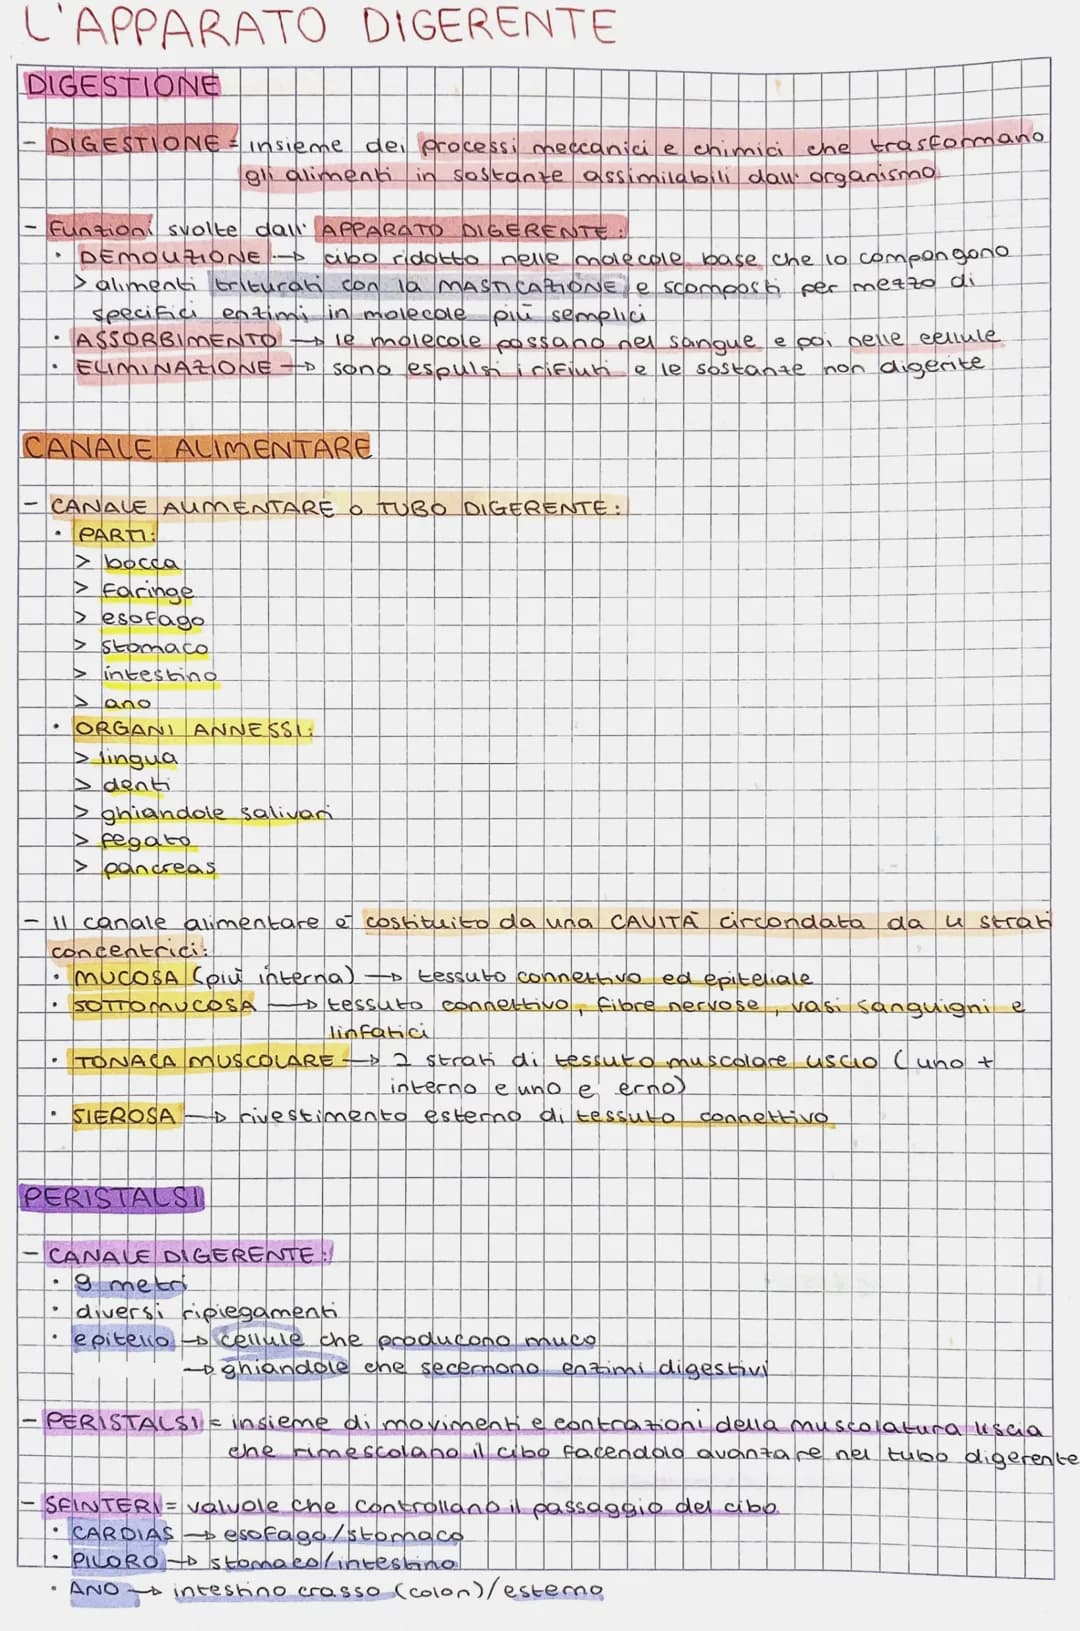 L'APPARATO DIGERENTE
DIGESTIONE
- DIGESTIONE = insieme dei processi meccanici e chimici che trasformano
gli alimenti in sostanze assimilabili dall' organismo
- Funzioni svolte dall' APPARATO DIGERENTE:
· DEMOLIZIONE → cibo ridotto nelle molecole base che lo compongono
> alimenti triturati con la MASTICAZIONE e scomposti per mezzo di
specifici enzimi in molecole più semplici
· ASSORBIMENTO → le molecole passano nel sangue e poi nelle cellule
· ELIMINAZIONE → sono espulsi i rifiuti e le sostanze non digerite
CANALE ALIMENTARE
- CANALE ALIMENTARE o TUBO DIGERENTE:
· PARTI:
> bocca
> faringe
> esofago
> stomaco
> intestino
> ano
· ORGANI ANNESSI:
> lingua
> denti
> ghiandole salivari
> fegato
> pancreas
- Il canale alimentare è costituito da una CAVITÀ circondata da 4 strati
concentrici:
· MUCOSA (più interna) → tessuto connettivo ed epiteliale
· SOTTOMUCOSA → tessuto connettivo, fibre nervose, vasi sanguigni e
linfatici
· TONACA MUSCOLARE → 2 strati di tessuto muscolare liscio (uno +
interno e uno e erno)
· SIEROSA → rivestimento esterno di tessuto connettivo
PERISTALSI
- CANALE DIGERENTE:
· 9 metri
· diversi ripiegamenti
· epitelio → cellule che producono muco
→ ghiandole che secernono enzimi digestivi
- PERISTALSI = insieme di movimenti e contrazioni della muscolatura liscia
che rimescolano il cibo facendolo avanzare nel tubo digerente
- SFINTERI = valvole che controllano il passaggio del cibo
· CARDIAS → esofago/stomaco
· PILORO → stomaco/intestino
· ANO → intestino crasso (colon)/esterno